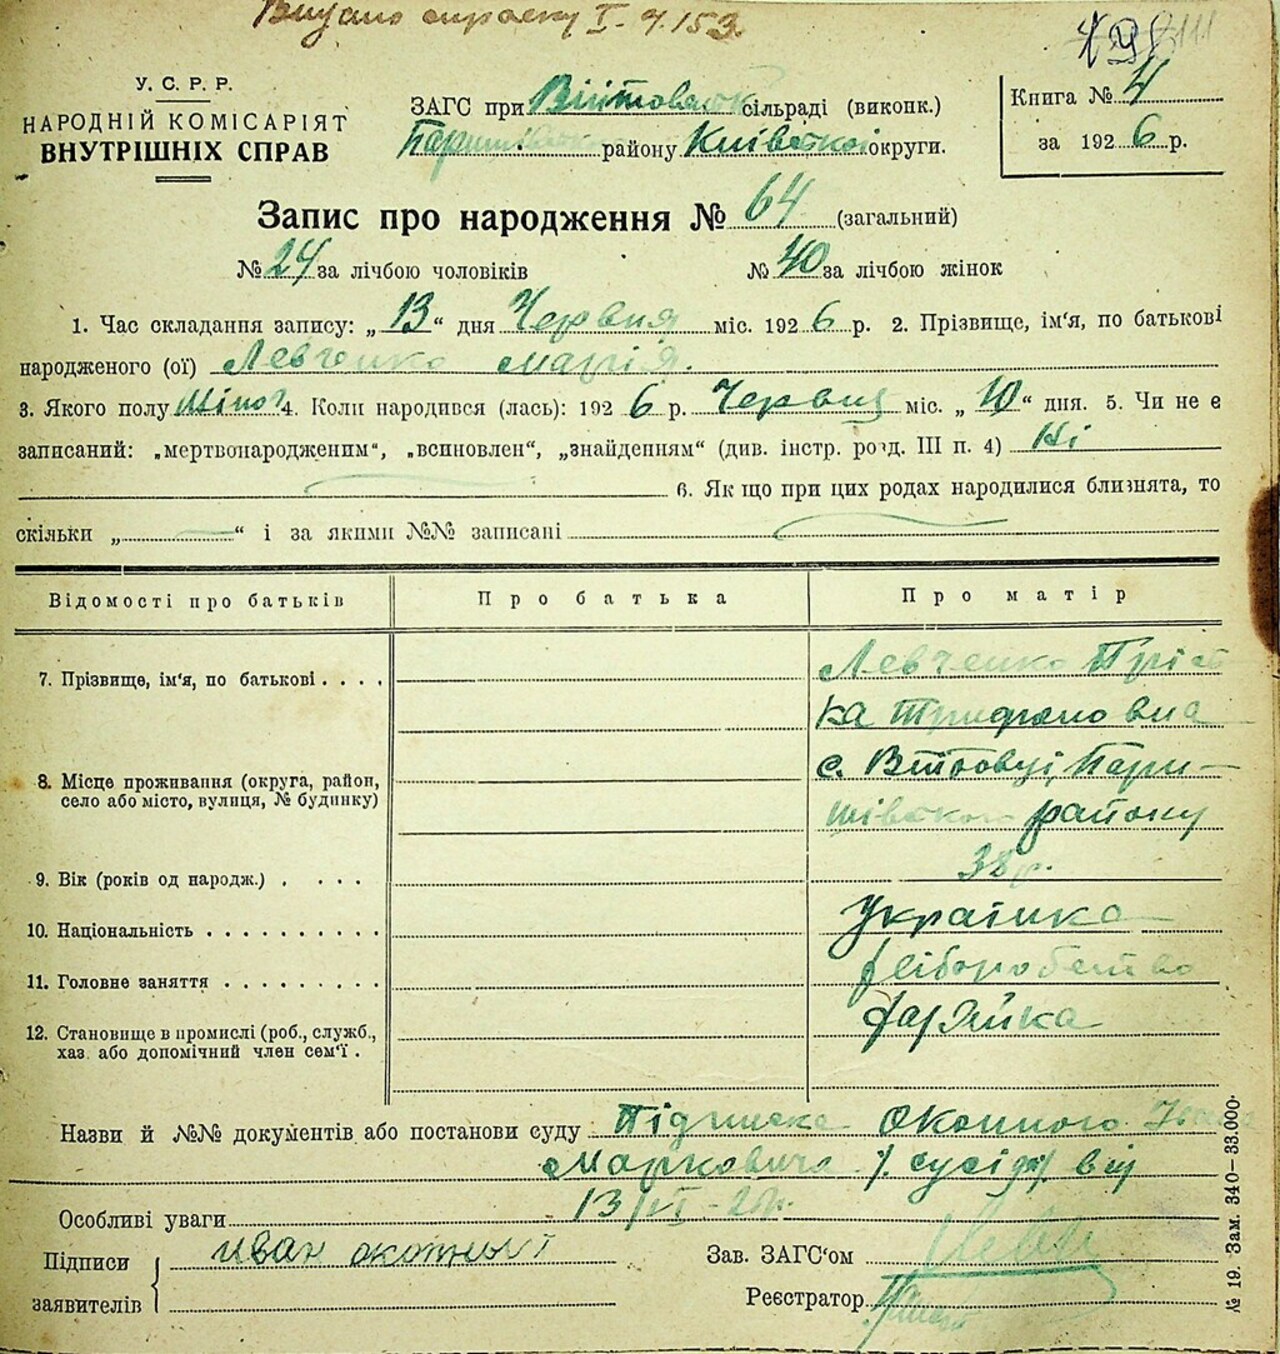 Видано справку І. ч. 153
У. С. Р. Р.
НАРОДНІЙ КОМІСАРІЯТ
ВНУТРІШНІХ СПРАВ
ЗАГС при Війтовецк сільраді (виконк.)
району Київської округи.
Книга № 4
за 1926 р.
Запис про народження № 64 (загальний)
№ 24 за лічбою чоловіків № 40 за лічбою жінок
1. Час складання запису: „13“ дня Червня міс. 1926 р. 2. Прізвище, ім'я, по батькові
народженого (ої) Левченко Марія.
3. Якого полу Жіноч. 4. Коли народився (лась): 1926 р. Червця міс. „10“ дня. 5. Чи не є
записаний: „мертвонародженим“, „всиновлен“, „знайденням“ (див. інстр. розд. III п. 4) Ні
6. Якщо при цих родах народилися близнята, то
скільки „ “ і за якими №№ записані
Відомості про батьків Про батька Про матір
7. Прізвище, ім'я, по батькові . . . . Левченко Пріс
ка Трифоновна
8. Місце проживання (округа, район, село або місто, вулиця, № будинку) с. Вттовці, Пари-
шівського району
9. Вік (років од народж.) . . . . 38 р.
10. Національність . . . . . . . . . . Українка
11. Головне заняття . . . . . . . . . Хліборобство
12. Становище в промислі (роб., служб.,
хаз. або допомічний член сем'ї .
Назви й №№ документів або постанови суду Підписка Оконного Івана
Марковича /. сусід /. від
13/VI - 26 р.
Особливі уваги
Підписи
заявителів
иван
Зав. ЗАГС'ом
Реєстратор
№ 19. Зам. 340—33.000.